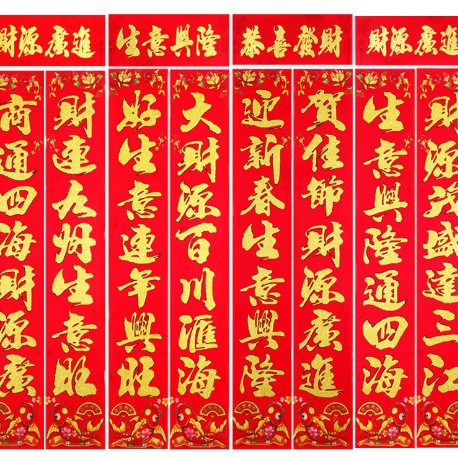 財源廣進
生意興隆
恭喜發財
財源廣進
商通四海財源廣
財連九州生意旺
好生意連年興旺
大財源百川滙海
迎新春生意興隆
賀佳節財源廣進
生意興隆通四海
財源茂盛達三江